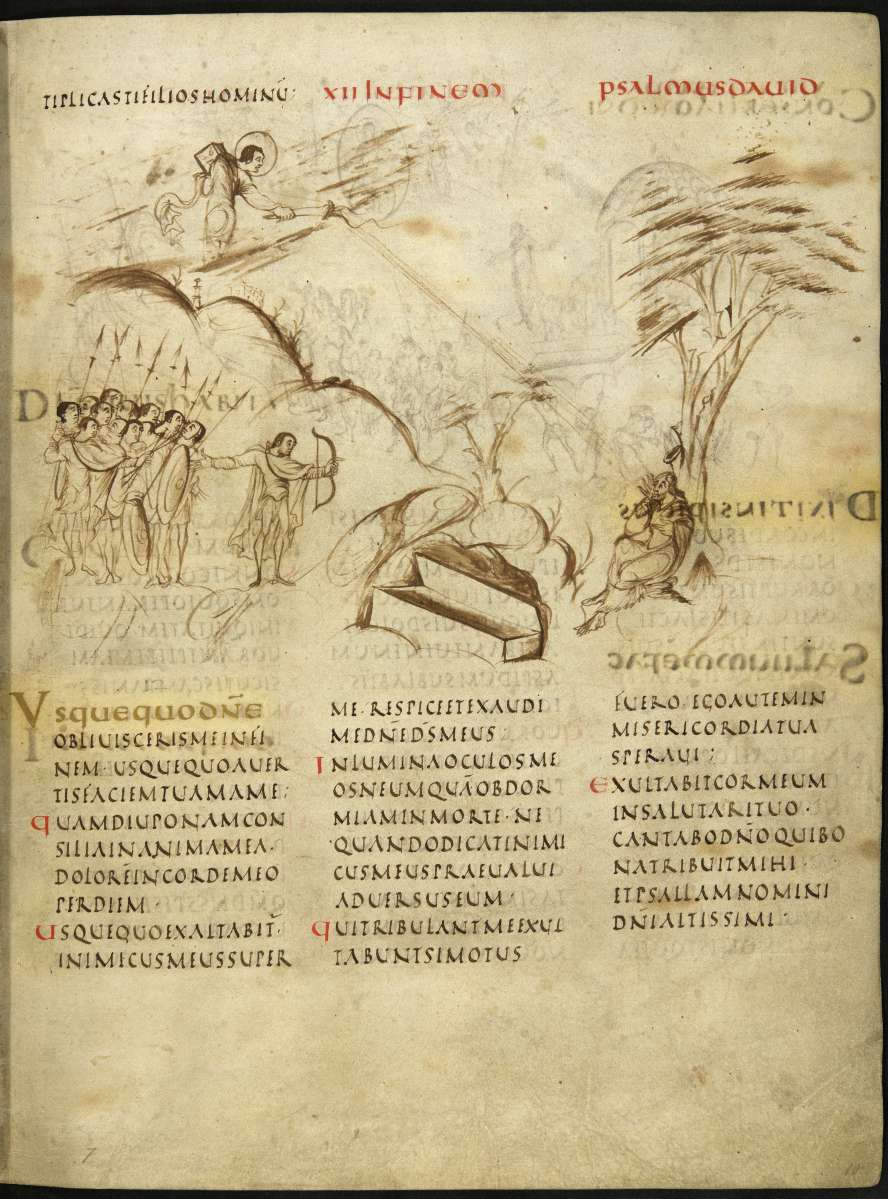 TIPLICASTI FILIOS HOMINŪ:
XII IN FINEM PSALMUS DAVID
VSQUEQUO DÑE
OBLIUISCERIS ME IN FI
NEM· USQUEQUO AUER
TIS FACIEM TUAM A ME;
QUAMDIU PONAM CON
SILIA IN ANIMA MEA·
DOLORĒ IN CORDE MEO
PER DIEM·
USQUEQUO EXALTABIT̄·
INIMICUS MEUS SUPER
ME· RESPICE ET EXAUDI
ME DÑE DS̄ MEUS
INLUMINA OCULOS ME
OS NE UMQUĀ OBDOR
MIAM IN MORTE· NE
QUANDO DICAT INIMI
CUS MEUS PRAEUALUI
ADUERSUS EUM·
QUI TRIBULANT ME EXUL
TABUNT SI MOTUS
FUERO· EGO AUTEM IN
MISERICORDIA TUA
SPERAUI;
EXULTABIT COR MEUM
IN SALUTARI TUO·
CANTABO DÑO QUI BO
NA TRIBUIT MIHI·
ET PSALLAM NOMINI
DÑI ALTISSIMI·
7